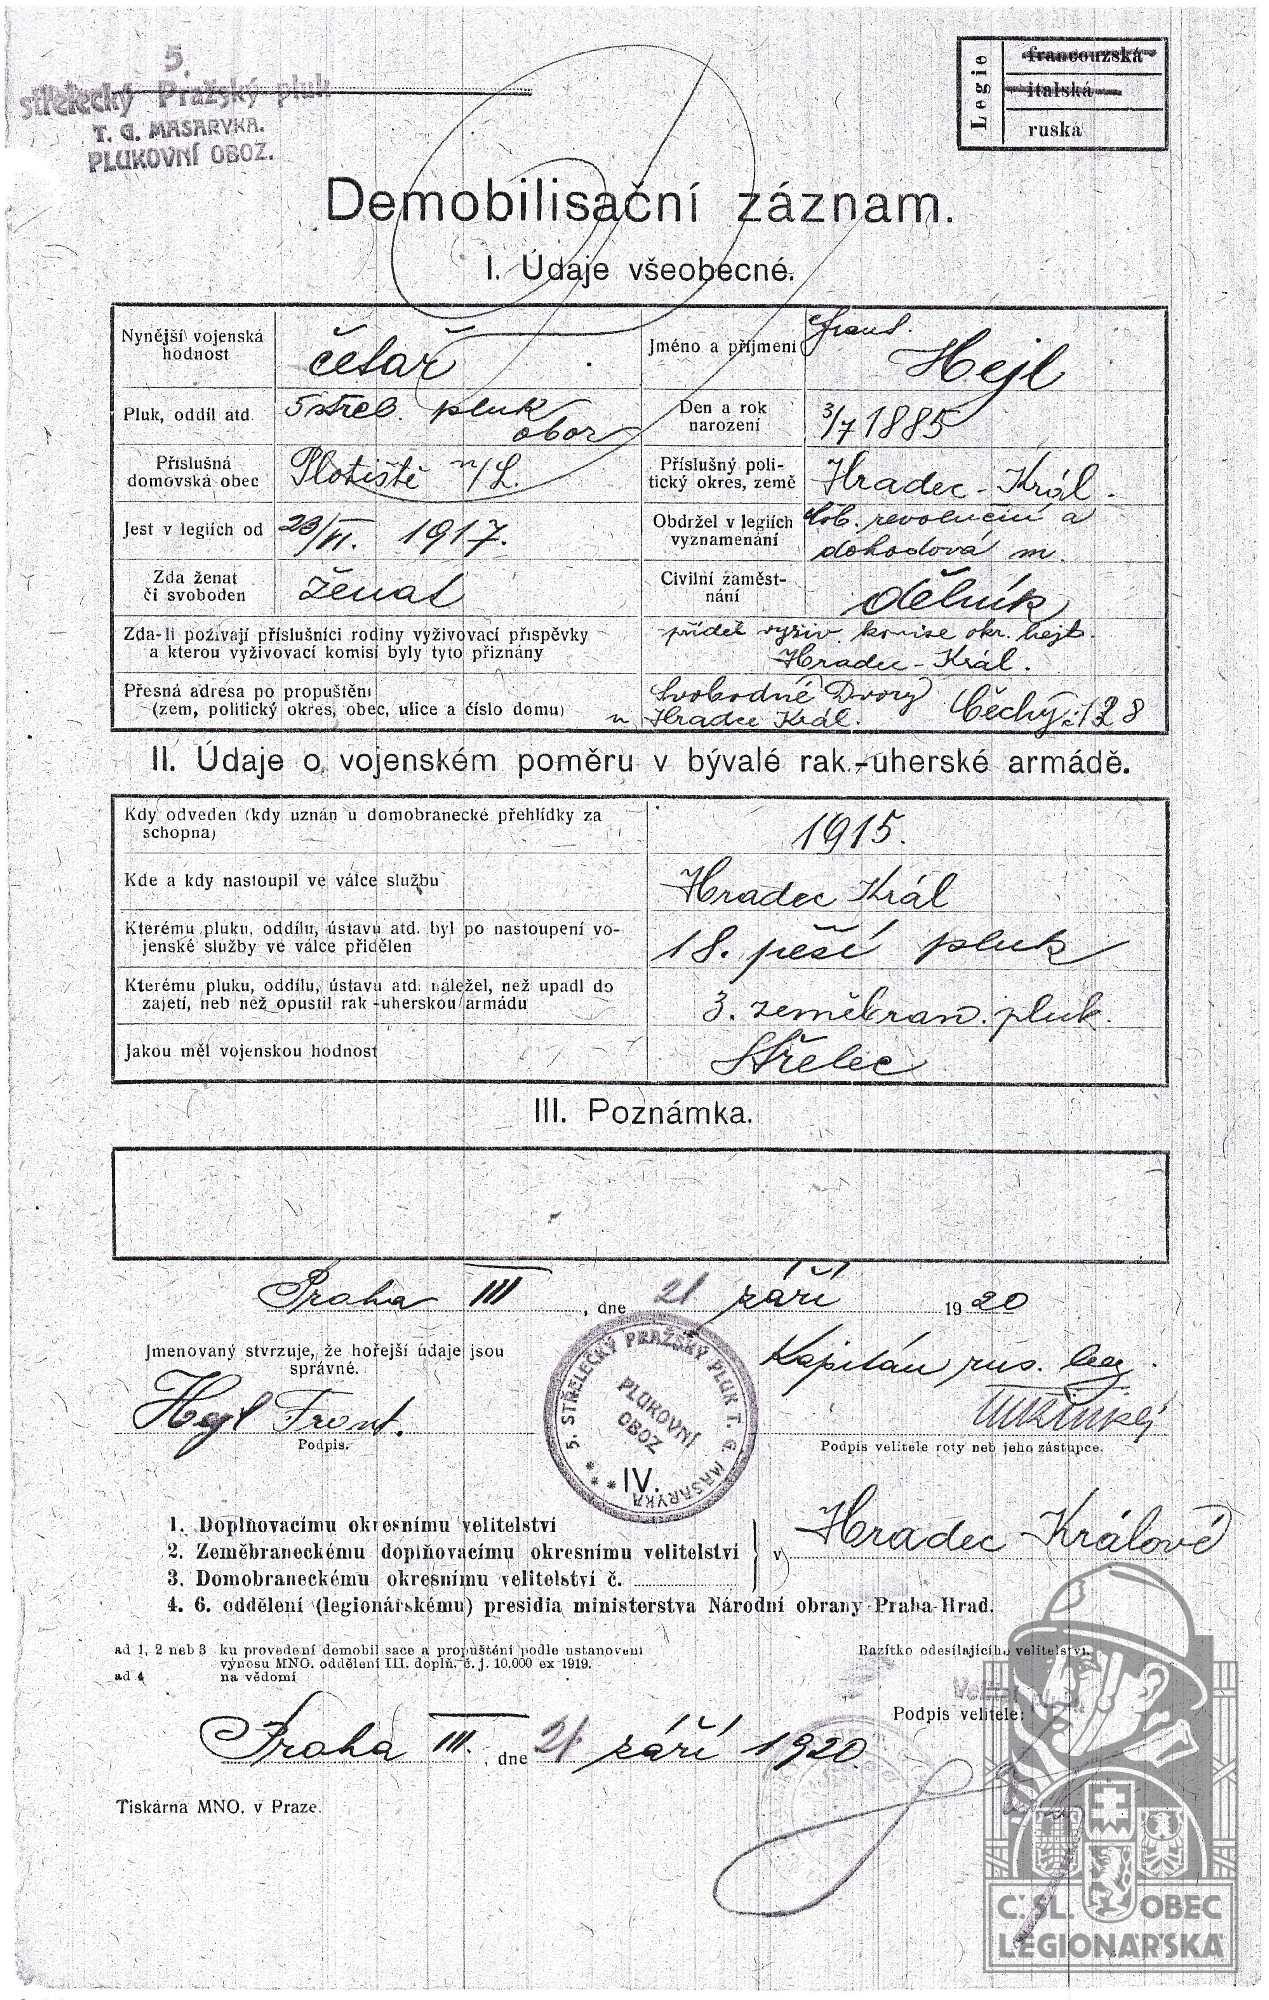 5.
střelecký Pražský pluk
T. G. MASARYKA.
PLUKOVNÍ OBOZ.
Legie
francouzská
italská
ruská
Demobilisační záznam.
I. Údaje všeobecné.
Nynější vojenská hodnost
četař
Jméno a příjmení
Frant.
Hejl
Pluk, oddíl atd.
5 střel. pluk
oboz
Den a rok narození
3/7 1885
Příslušná domovská obec
Plotiště n/L.
Příslušný politický okres, země
Hradec-Král.
Jest v legiích od
23/VI. 1917.
Obdržel v legiích vyznamenání
revoluční a
dohodová m.
Zda ženat či svoboden
ženat
Civilní zaměstnání
dělník
Zda-li požívají příslušníci rodiny vyživovací příspěvky
a kterou vyživovací komisí byly tyto přiznány
příděl vyživ. komise okr. hejt.
Hradec-Král.
Přesná adresa po propuštění
(zem, politický okres, obec, ulice a číslo domu)
Svobodné Dvory
u Hradce Král. Čechy č. 128
II. Údaje o vojenském poměru v bývalé rak.-uherské armádě.
Kdy odveden (kdy uznán u domobranecké přehlídky za
schopna)
1915.
Kde a kdy nastoupil ve válce službu
Hradec Král
Kterému pluku, oddílu, ústavu atd. byl po nastoupení vo-
jenské služby ve válce přidělen
18. pěší pluk
Kterému pluku, oddílu, ústavu atd. náležel, než upadl do
zajetí, neb než opustil rak-uherskou armádu
3. zeměbran. pluk.
Jakou měl vojenskou hodnost
Střelec
III. Poznámka.
Praha III, dne 21 září 1920
Jmenovaný stvrzuje, že hořejší údaje jsou
správné.
Kapitán rus. leg.
Hejl Frant.
Podpis.
5. STŘELECKÝ PRAŽSKÝ PLUK T. G. MASARYKA
PLUKOVNÍ
OBOZ
IV.
Podpis velitele roty neb jeho zástupce.
1. Doplňovacímu okresnímu velitelství
2. Zeměbraneckému doplňovacímu okresnímu velitelství
3. Domobraneckému okresnímu velitelství č.
v Hradec Králové
4. 6. oddělení (legionářskému) presidia ministerstva Národní obrany Praha-Hrad.
ad 1, 2 neb 3 ku provedení demobilisace a propuštění podle ustanovení
výnosu MNO. oddělení III. doplň. č. j. 10.000 ex 1919.
ad 4 na vědomí
Razítko odesílajícího velitelství.
Podpis velitele:
Praha III., dne 21 září 1920.
Tiskárna MNO. v Praze.
Č. SL. OBEC
LEGIONÁŘSKÁ